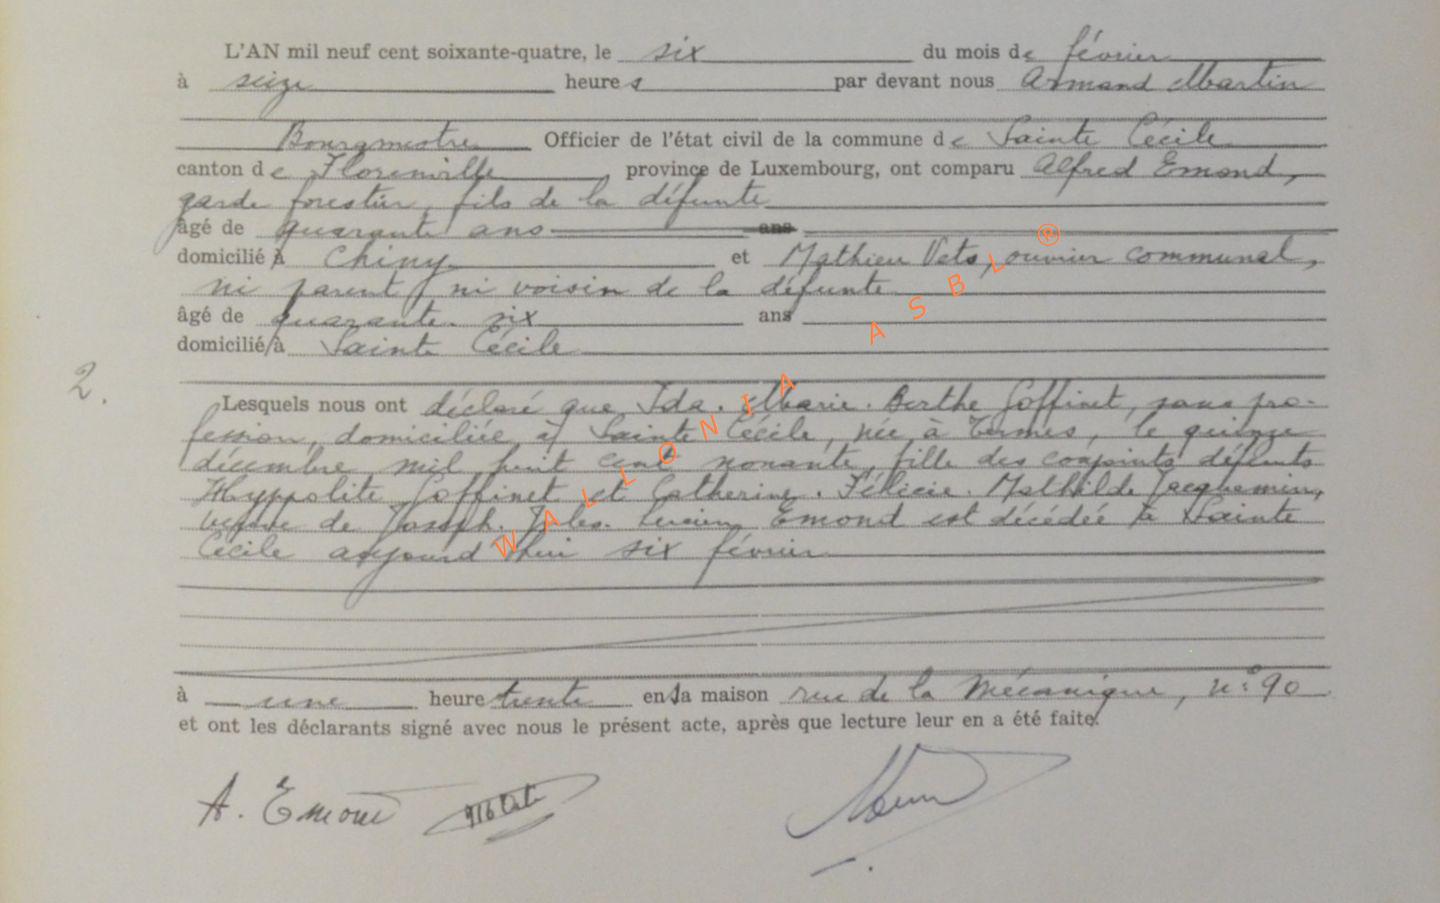 L'AN mil neuf cent soixante-quatre, le six du mois de février
à seize heures par devant nous Armand Martin
Bourgmestre Officier de l'état civil de la commune de Sainte Cécile
canton de Florenville, province de Luxembourg, ont comparu Alfred Emond,
garde forestier, fils de la défunte
âgé de quarante ans ans
domicilié à Chiny et Mathieu Vets, ouvrier communal,
ni parent, ni voisin de la défunte
âgé de quarante-six ans
domicilié à Sainte Cécile
2.
Lesquels nous ont déclaré que Ida-Marie-Berthe Goffinet, sans pro-
fession, domiciliée à Sainte Cécile, née à Termes, le quinze
décembre mil huit cent nonante, fille des conjoints défunts
Hyppolite Goffinet et Catherine-Félicie-Mathilde Jacquemin,
veuve de Joseph-Jules-Lucien Emond est décédée à Sainte
Cécile aujourd'hui six février
à une heure trente en la maison rue de la Mécanique, n° 90
et ont les déclarants signé avec nous le présent acte, après que lecture leur en a été faite.
A. Emond
WALLONIA ASBL®